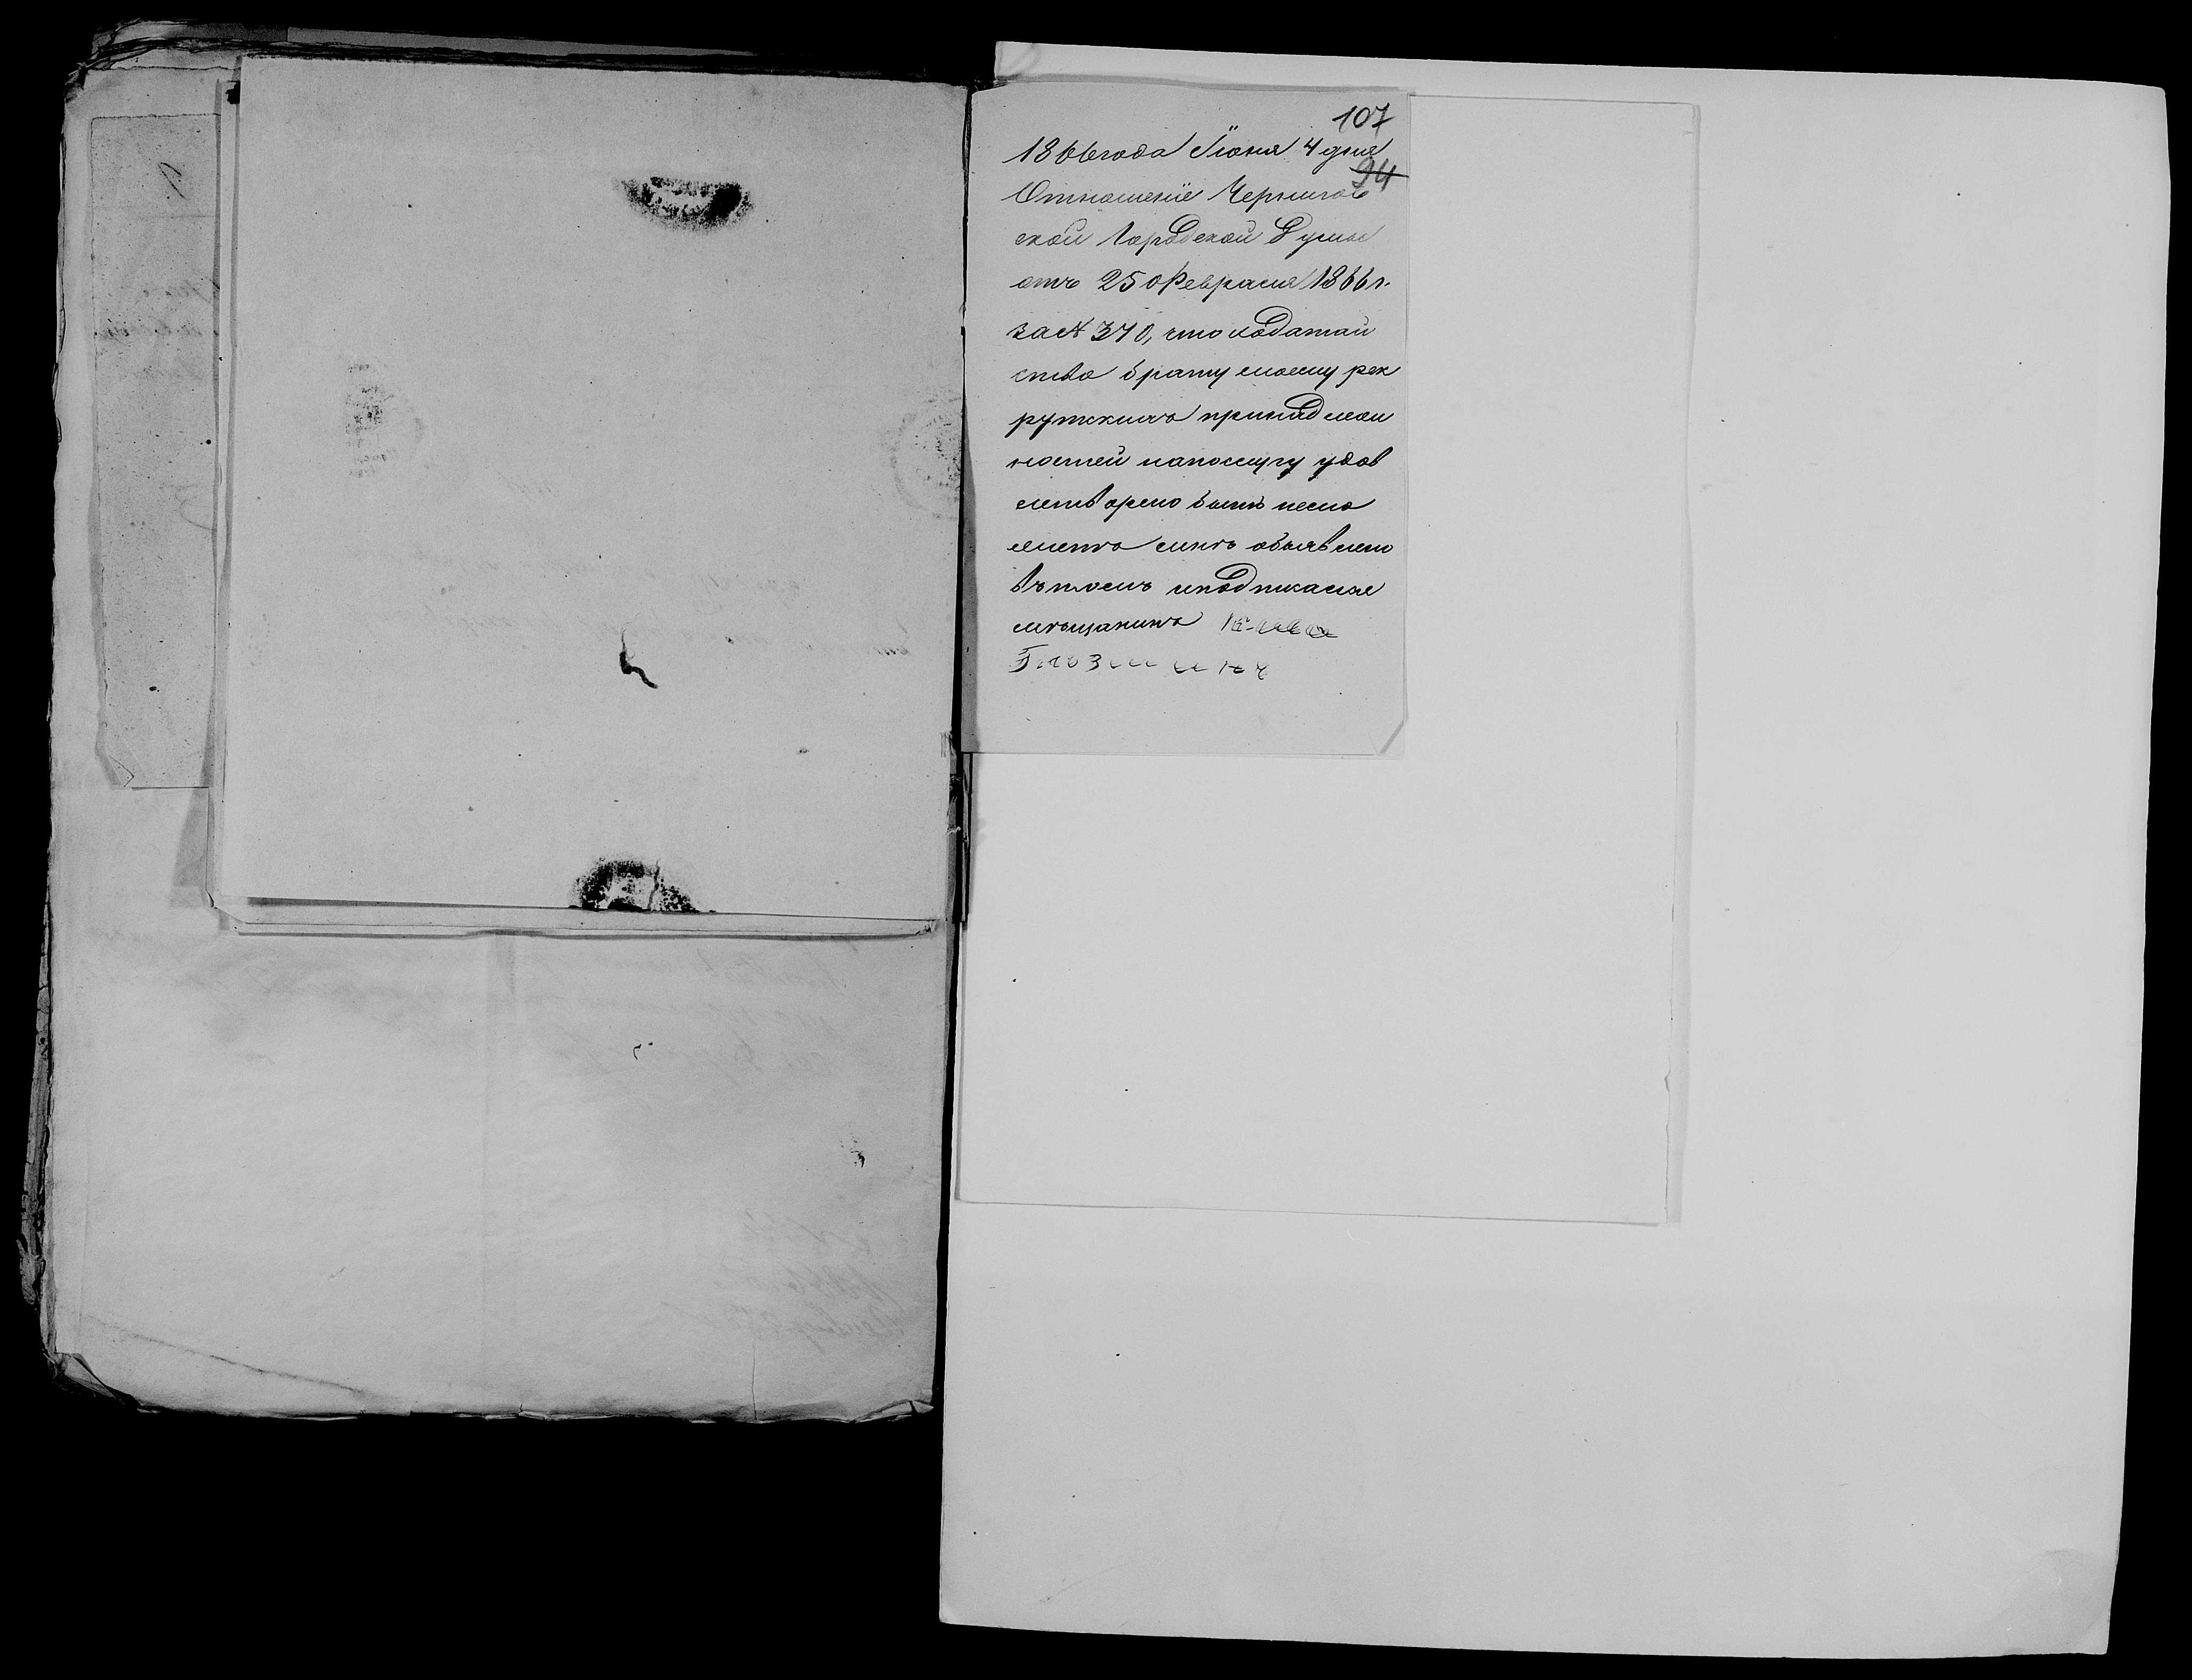 107
1866 года Іюня 4 дня
94
Отношеніе Чернигов
ской Городской Думы
отъ 25 Февраля 1866 г.
за № 370, что ходатай
ство брату моему рек
рутскихъ принадлеж
ностей на послугу удов
летворено быть не
можетъ мнѣ объявлено
въ томъ и подписался
мѣщанинъ